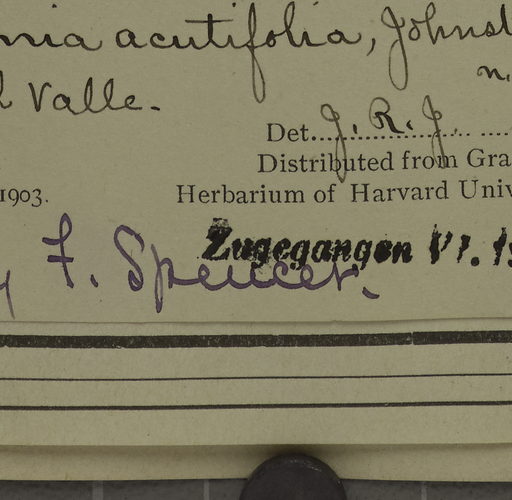 acutifolia, Johnst
n.
Valle.
Det. J. R. J.
Distributed from Gra
1903. Herbarium of Harvard Univ
F. Spencer.
Zugegangen VI. 19